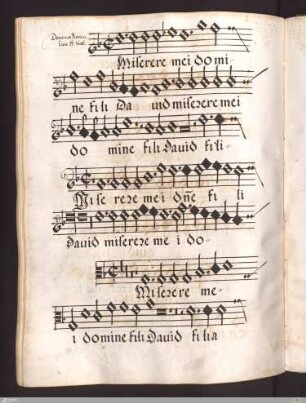 Miserere mei domi
ne fili Da uid miserere mei
do mine fili Dauid fili-
Mise rere mei dñe fi li
Dauid miserere me i do-
Miserere me-
i domine fili Dauid filia